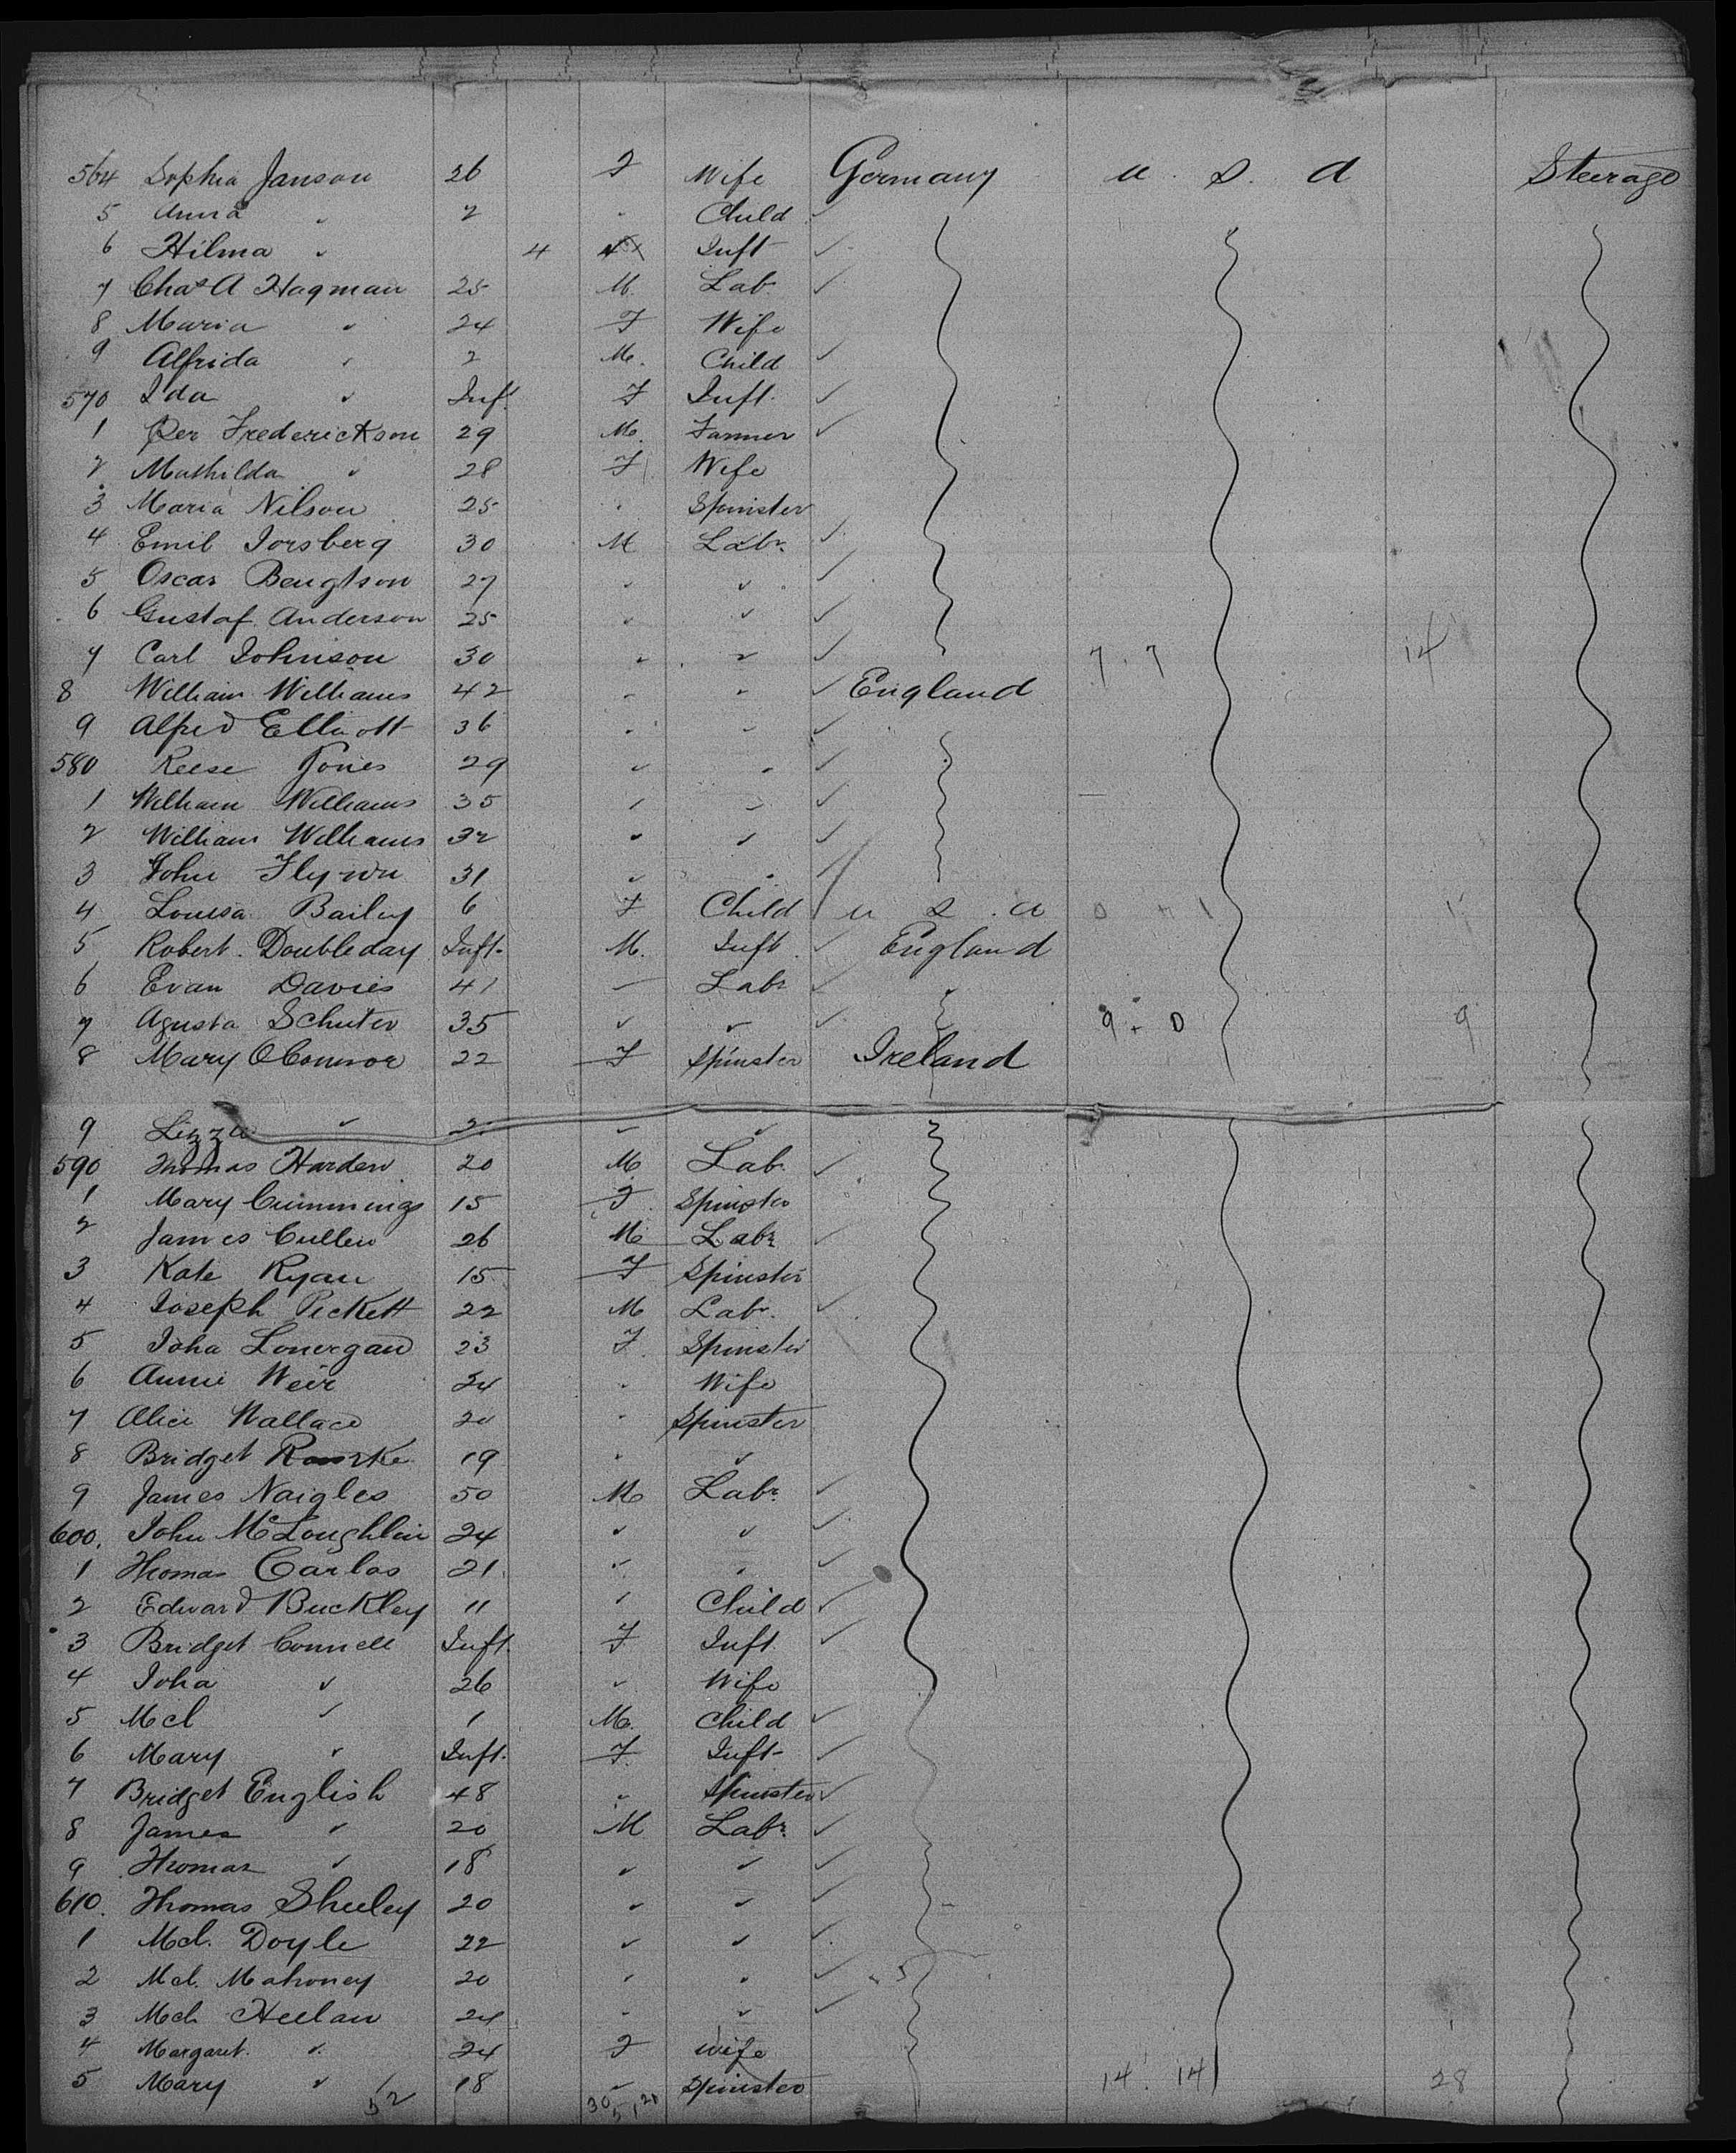 564 Sophia Janson 26 F Wife Germany U. S. A Steerage
5 Anna " 2 " Child ✓
6 Hilma " 4 Inft ✓
7 Chas A Hagman 25 M. Lab. ✓
8 Maria " 24 F Wife
9 Alfrida " 2 M. Child ✓
570 Ida " Inf. F Inft. ✓
1 Per Frederickson 29 M. Farmer ✓
2 Mathilda " 28 F Wife
3 Maria Nilson 25 " Spinster
4 Emil Forsberg 30 M Labr. ✓
5 Oscar Bengtson 27 " " ✓
6 Gustaf Anderson 25 " " ✓
7 Carl Johnson 30 " " ✓ 7. 7 14
8 William Williams 42 " " ✓ England
9 Alfred Elliott 36 " " ✓
580 Reese Jones 29 " " ✓
1 William Williams 35 " " ✓
2 William Williams 32 " " ✓
3 John Flynn 31 " "
4 Louisa Bailey 6 F Child U S. A 0 + 1 1
5 Robert Doubleday Inft. M. Inft. ✓ England
6 Evan Davies 41 " Labr ✓
7 Agusta Schuter 35 " " ✓ 9 + 0 9
8 Mary OConnor 22 F Spinster Ireland
9 Lizzie " " "
590 Thomas Harden 20 M Lab. ✓
1 Mary Cummings 15 F Spinster
2 James Cullen 26 M Labr ✓
3 Kate Ryan 15 F Spinster
4 Joseph Pickett 22 M Labr. ✓
5 Joha Lonergan 23 F. Spinster
6 Annie Weir 24 " Wife
7 Alice Wallace 20 " Spinster
8 Bridget Rourke 19 " "
9 James Naigles 50 M Labr. ✓
600. John McLoughlin 24 " " ✓
1 Thomas Carlos 21 " " ✓
2 Edward Buckley 11 " Child ✓
3 Bridget Connell Inft. F Inft. ✓
4 Joha " 26 " Wife
5 Mcl " 1 M. Child ✓
6 Mary " Inft. F. Inft ✓
7 Bridget English 48 " Spinster ✓
8 James " 20 M Labr. ✓
9 Thomas " 18 " " ✓
610. Thomas Sheeley 20 " " ✓
1 Mcl. Doyle 22 " " ✓
2 Mcl. Mahoney 20 " " ✓
3 Mcl. Heelan 24 " " ✓
4 Margaret. " 24 F Wife
5 Mary " 18 " Spinster 14. 14 28
52 30